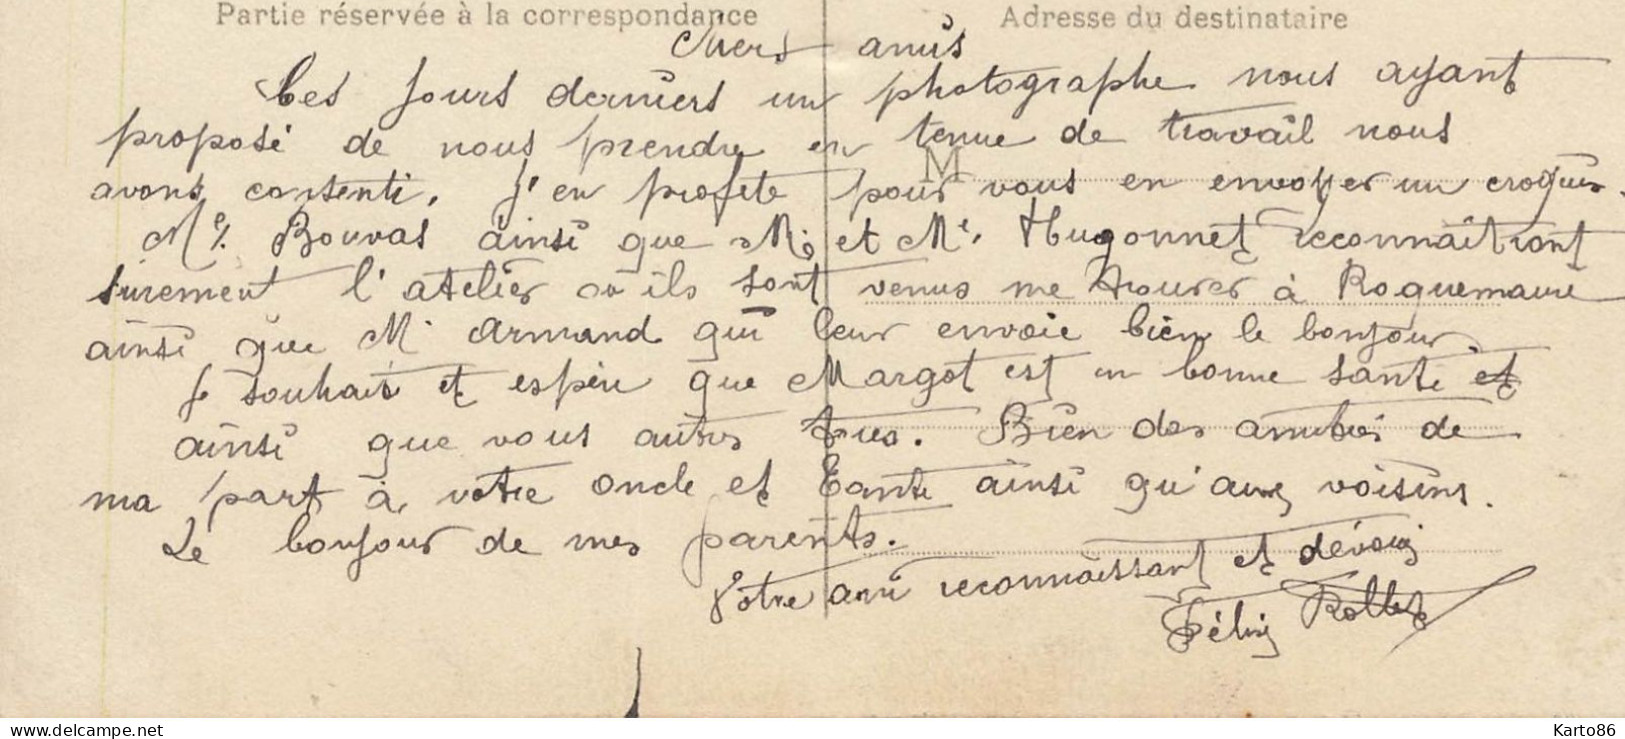 Partie réservée à la correspondance
Adresse du destinataire
Chers amis
Ces jours derniers un photographe nous ayant
proposé de nous prendre en tenue de travail nous
M
avons consenti. J'en profite pour vous en envoyer un croquis.
Bouvas ainsi que Mr et Me. Hugonnet reconnaîtront
surement l'atelier où ils sont venus me trouver à Roquemaure
ainsi que M. Armand qui leur envoie bien le bonjour.
Je souhais et espère que Margot est en bonne santé et
ainsi que vous autres tous. Bien des amitiés de
ma part à votre oncle et Tante ainsi qu'aux voisins.
Le bonjour de mes parents.
Votre ami reconnaissant et dévoué
Félix
Delcampe.net
Karto86